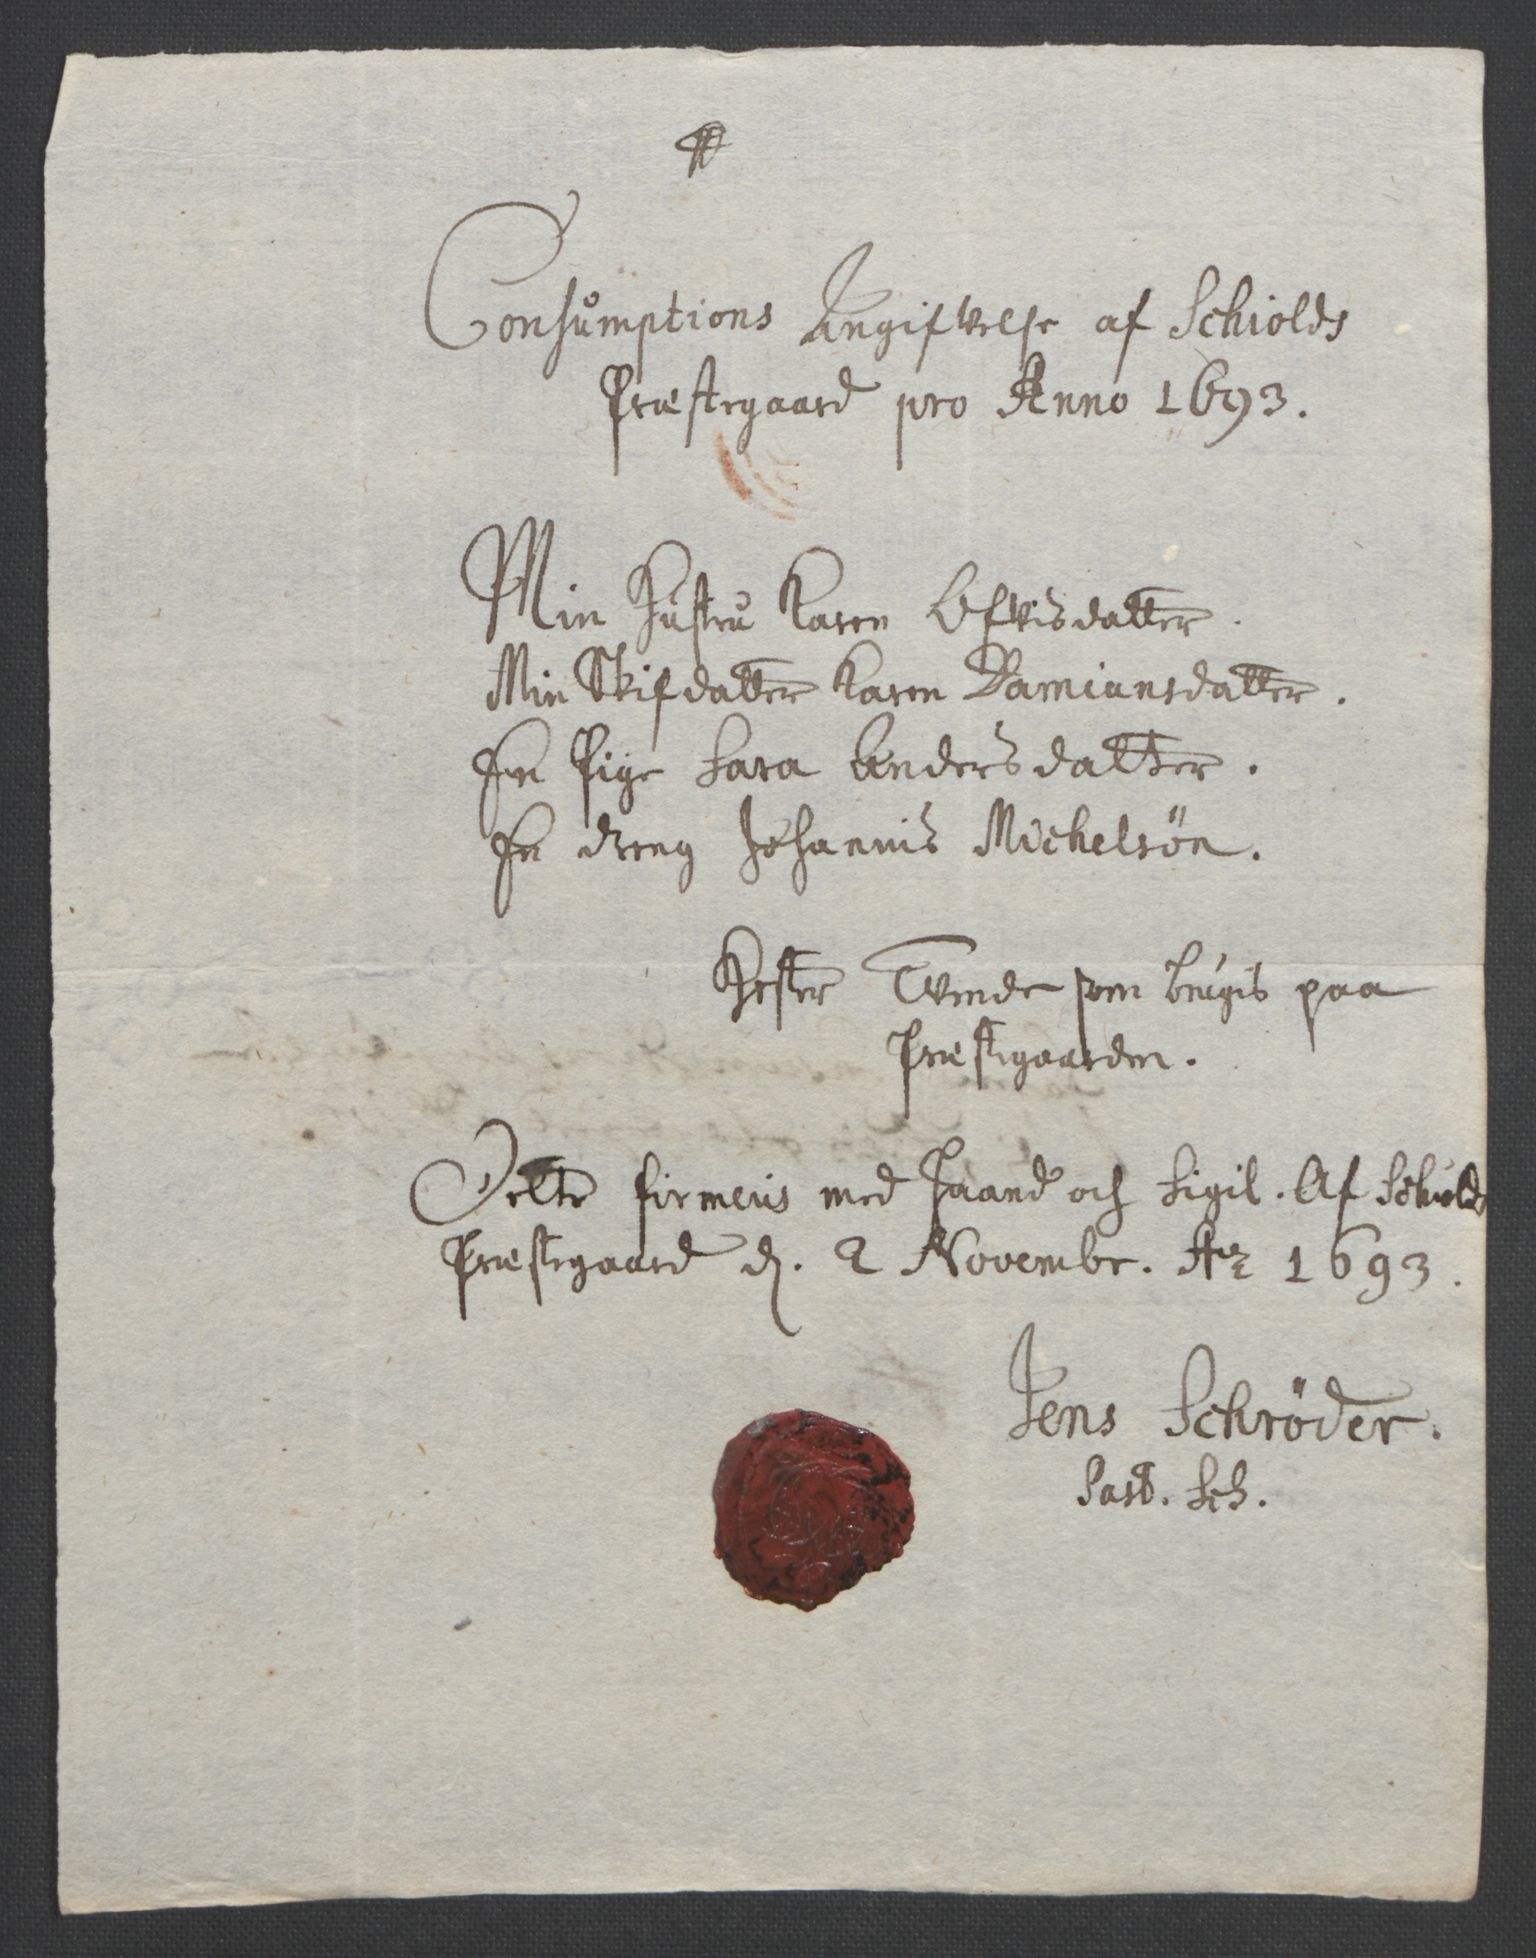 Consumptions Angifvelse af Schiolds
Præstegaard pro Anno 1693.
Min Hustru Karen Ofvisdatter.
Min Stifdatter Karen Damiansdatter.
En Pige Sara Andersdatter.
En dreng Johannis Michelsön.
Hester Tvende som brugis paa
Præstegaarden.
Dette firmeris med Haand och Sigil. Af Schiolds
Præstegaard d. 2 Novembr. Ao 1693.
Jens Schröder.
Past. Sch.